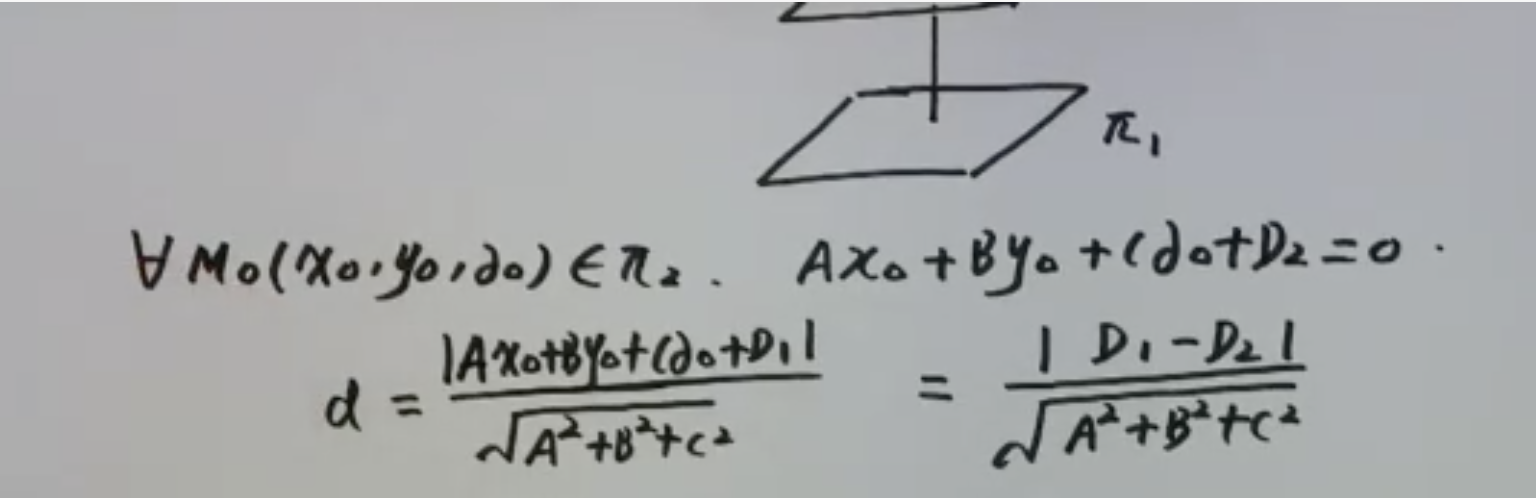 π₁
∀ M₀(x₀,y₀,z₀) ∈ π₂. Ax₀ + By₀ + Cz₀ + D₂ = 0.
d = |Ax₀+By₀+Cz₀+D₁| / √(A²+B²+C²) = | D₁ - D₂ | / √(A²+B²+C²)